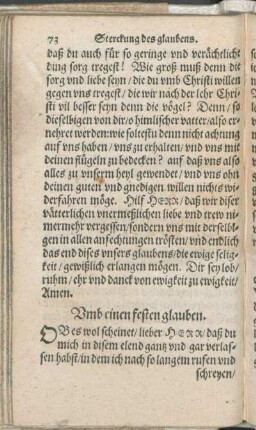 72 Sterckung des glaubens.
daß du auch für so geringe vnd verächtlich
ding sorg tregest! Wie groß muß denn die
sorg vnd liebe seyn / die du vmb Christi willen
gegen vns tregst / die wir nach der lehr Chri-
sti vil besser seyn denn die vögel? Denn / so
dieselbigen von dir / o himlischer vatter / also er-
nehret werden: wie soltestu denn nicht achtung
auf vns haben / vns zu erhalten / vnd vns mit
deinen flügeln zu bedecken? auf daß vns also
alles zu vnserm heyl gewendet / vnd vns ohn
deinen guten vnd gnedigen willen nichts wi-
derfahren möge. Hilf HERR / daß wir diser
vätterlichen vnermeßlichen liebe vnd trew ni-
mermehr vergessen / sondern vns mit derselbi-
gen in allen anfechtungen trösten / vnd endlich
das end dises vnsers glaubens / die ewige selig-
keit / gewißlich erlangen mögen. Dir sey lob /
ruhm / ehr vnd danck von ewigkeit zu ewigkeit /
Amen.
Vmb einen festen glauben.
OB es wol scheinet / lieber HERR / daß du
mich in disem elend gantz vnd gar verlas-
sen habst / in dem ich nach so langem rufen vnd
schreyen /